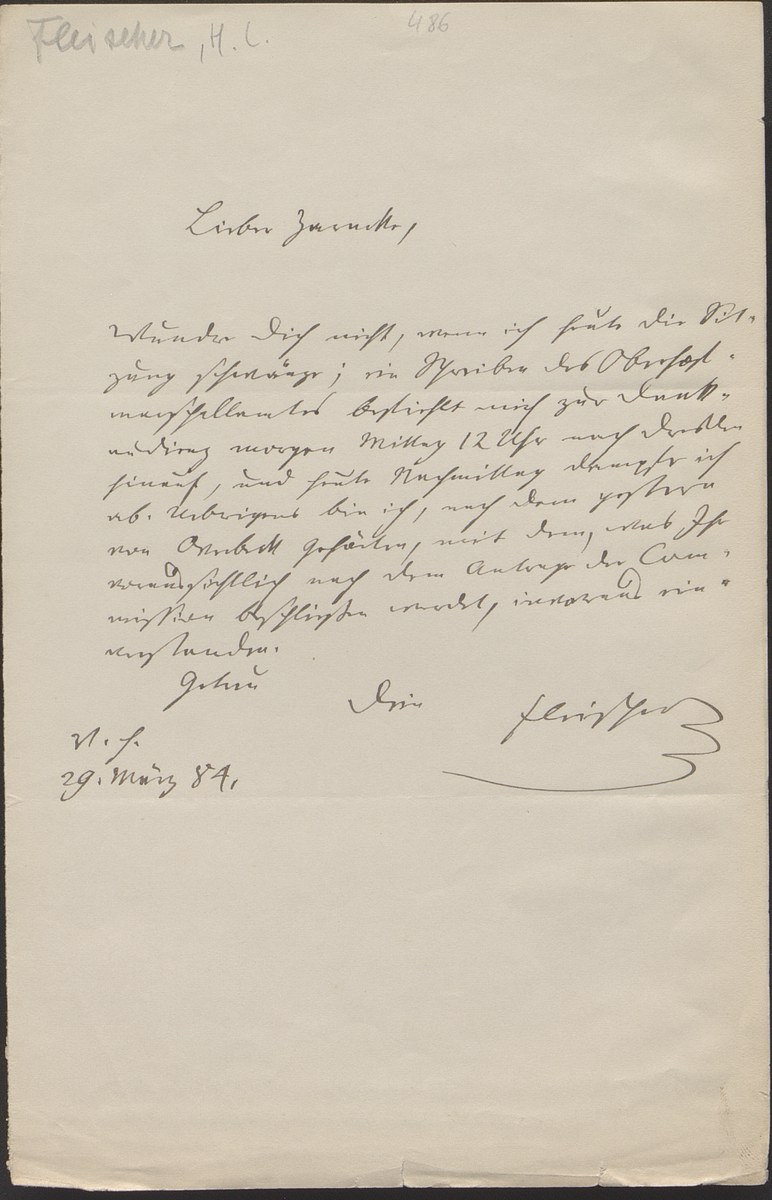 Fleischer, H. L.
486
Lieber Zarncke,
Wundre Dich nicht, wenn ich heute die Sit-
zung schwänze; ein Schreiben des Oberhof-
marschallamtes bestiehlt mich zur Dank-
audienz morgen Mittag 12 Uhr nach Dresden
hinauf, und heute Nachmittag dampfe ich
ab. Uebrigens bin ich, nach dem gestern
von Overbeck Gehörten, mit dem, was Ihr
voraussichtlich nach dem Antrage der Com-
mission beschließen werdet, im voraus ein-
verstanden.
Getreu
Dein Fleischer
V. H.
29. März 84.